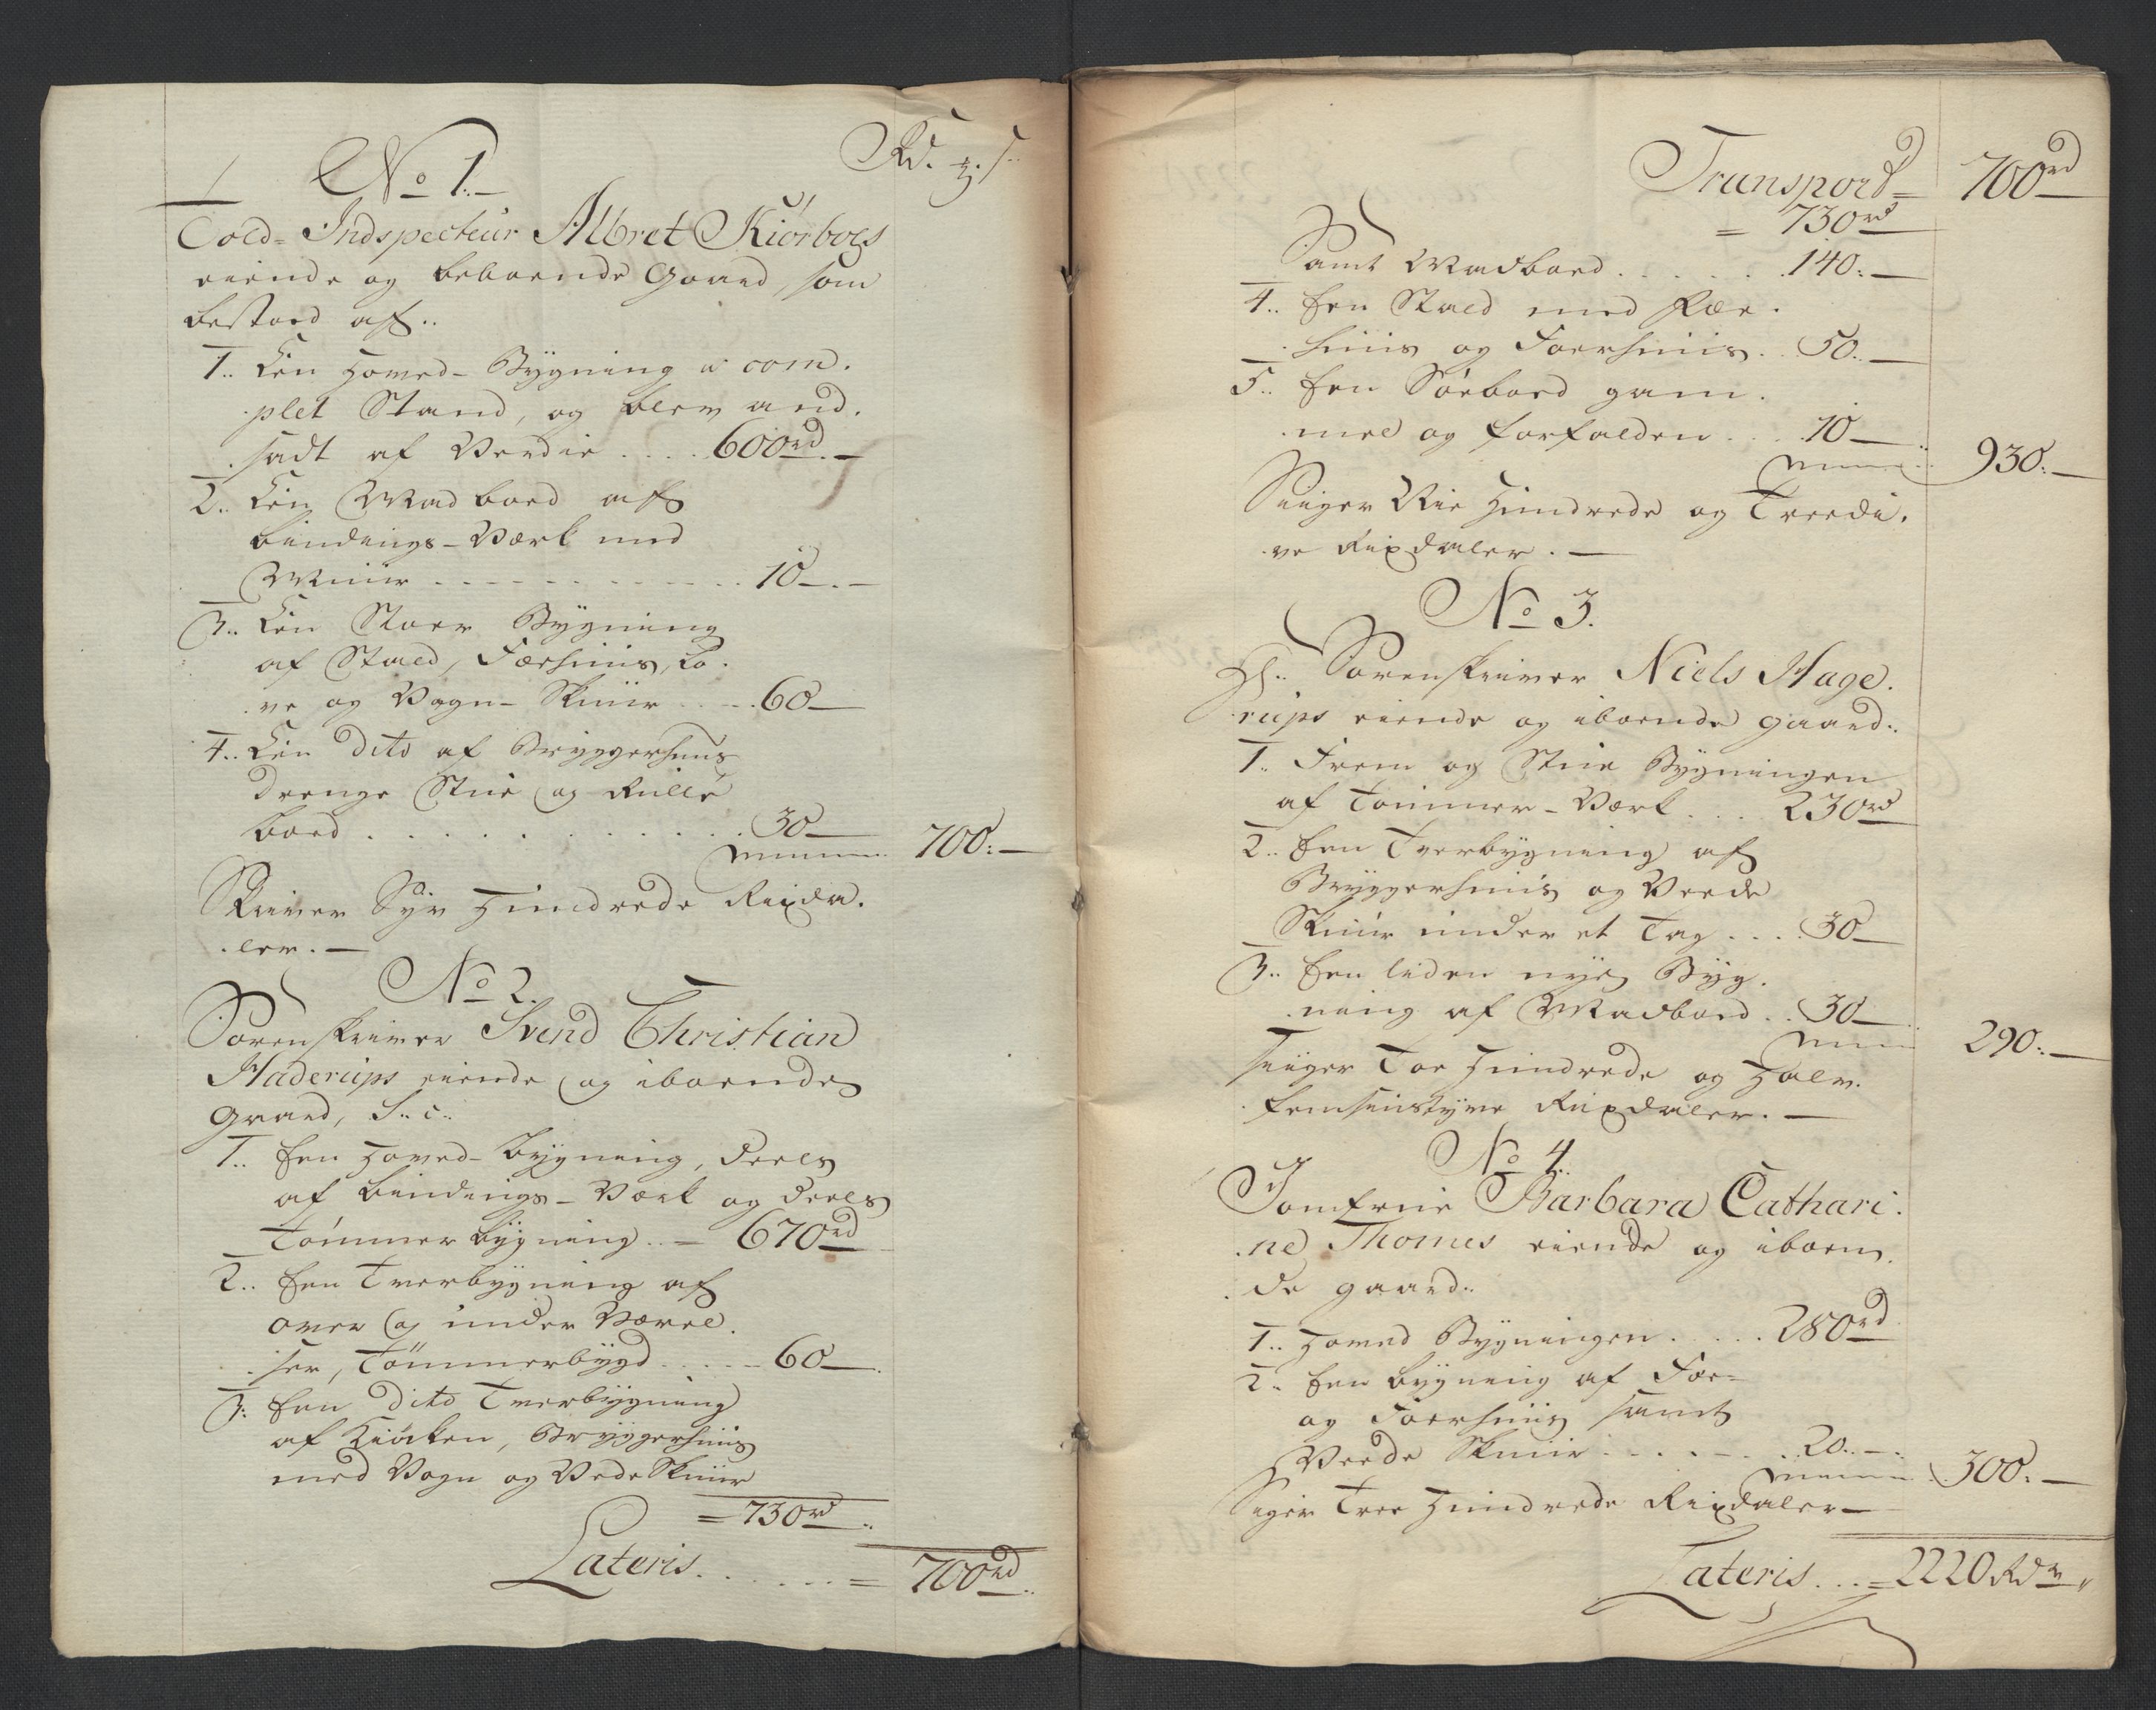 Rd. ꝫ. s.
No 1.
Told-Indspecteur Albret Kiørboes
eiende og beboende Gaard, som
bestoed af..
1.. Een Hoved-Bygning i com-
plet Stand, og blev and-
sadt af Verdie .... 600rd.
2.. Een Madboed af
bindings-Værk med
Muur ............ 10 —
3.. Een Stoer Bygning
af Stald, Færhuus, Lo-
ve og Vogn-Skuur .... 60 —
4.. Een dito af Bryggerhuus
Drenge Stue og Rulle
boed ............ 30 —
700: —
Skriver Syv Hundrede Rixda-
ler. —
No 2.
Sorenskriver Svend Christian
Haderups eiende og iboende
Gaard, S.. c..
1.. Een Hoved-bygning, deels
af bindings-Værk og deels
Tømmer bygning.. = 670rd
2.. Een Tverbygning af
over og under Værel-
ser, Tømmerbygd ..... 60 —
3. Een dito Tverbygning
af Kiøcken, Bryggerhuus
med Vogn og Vede Skuur
= 730rd
Lateris ...... = 700rd
Transpord = 700rd
= 730rd
Samt Madboed ...... 140: —
4.. Een Stald med Fæe-
huus og Foerhuus .. 50.. —
5.. Een Søeboed gam-
mel og forfalden .... 10 —
930: —
Siiger Nie Hundrede og Tredi-
ve Rixdaler. —
No 3.
Hr. Sorenskriver Niels Hage-
rups eiende og iboende gaard..
1.. Frem og Stue Bygningen
af Tømmer-Værk ... 230rd
2.. Een Tverbygning af
Bryggerhuus og Veede
Skuur under et Tag .... 30 —
3.. Een liden nye Byg-
ning af Madboed .. 30 —
290: —
siiger Toe Hundrede og Halv-
femsinstyve Rixdaler. —
No 4.
Jomfrue Barbara Cathari-
ne Thomes eiende og iboen-
de gaard..
1.. Hoved Bygningen ..... 280rd
2.. Een bygning af Fæe-
og Foerhuus samt
Veede Skuur ....... 20.. —
300: —
Siger Tree Hundrede Rixdaler —
Lateris ... = 2220 Rdr